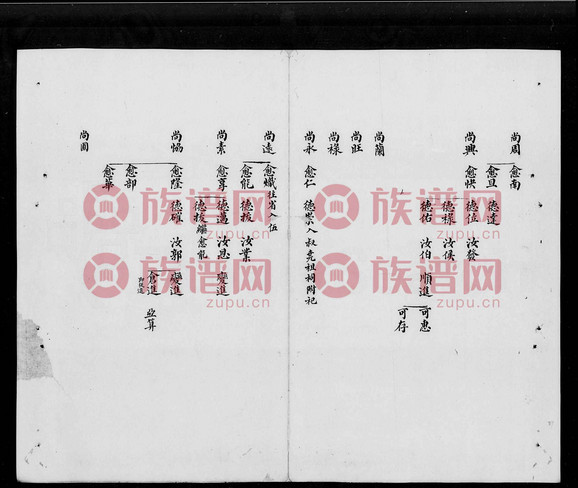 尚周 愈南
愈旦 德達
尚興 愈快 德位 汝發
德祿 汝候
德佑 汝伯 順進 可惠
可存
尚蘭
尚旺
尚祿
尚永 愈仁 德崇入叔堯祖祠附祀
尚遠 愈熾往省入伍
愈能 德接 汝業
尚素 愈享 德邁 汝思 變進
德接繼愈能
尚惕 愈隆 德確 汝郭 變進
愈部 愈進
愈華
尚圖
族谱网
zupu.cn
族谱网
zupu.cn
族谱网
zupu.cn
族谱网
zupu.cn